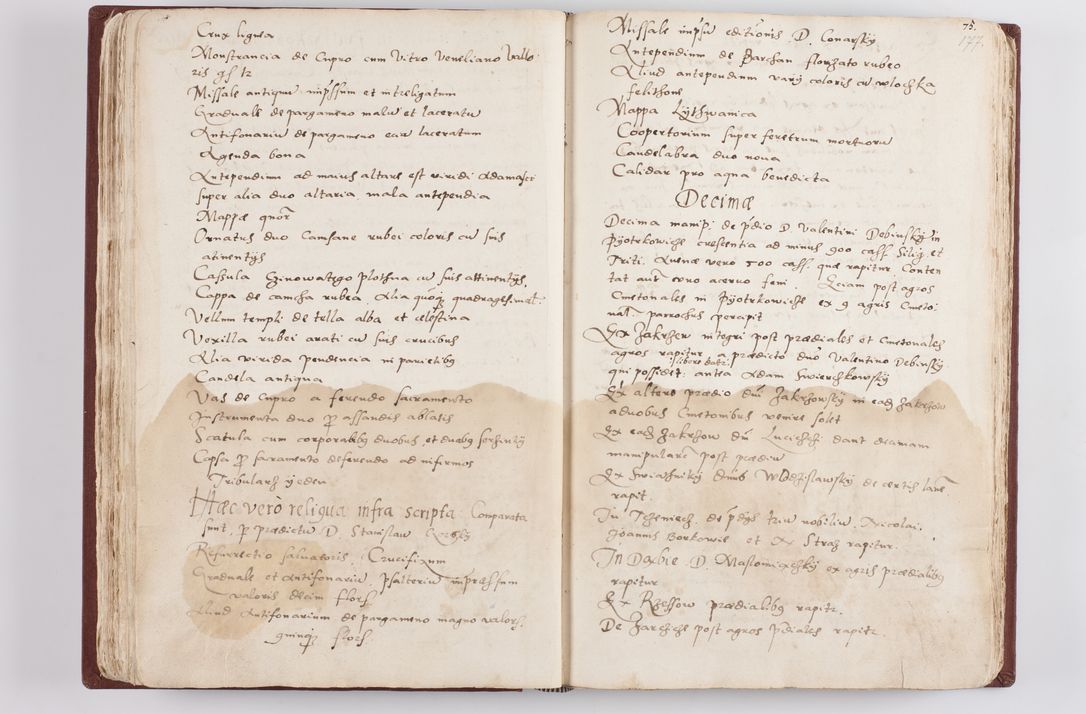 Crux lignea
Monstrancia de Cupro cum Vitro Veneliano Vallo
ris gs 12
Missale antiquu impssum et intreligatum
Graduale de pargameno malu et laceratu
Antifonariu de pargameno ecia laceratum
Agenda bona
Antependium ad maius altare est viridi Adamasci
super alia duo altaria mala antependia
Mappæ quor
Ornatus duo Camsane rubei coloris cu suis
atinentys
Cassula Plothna cu suis attinentys
Cappa de camcha rubea Alia quoq quadragesimal
Vellum templi de tella alba et celestina
Vexilla rubei arati cu suis crucibus
Alia virida pendencia in parietibq
Candela antiqua
Vas de Cupro a ferendo sacramento
Instrumenta duo p assandis ablatis
Scatula cum corporalibq duobus et duabq
Capsa p sacramento deferendo ad infirmos
Tribularz yeden
Hæc vero reliqua infra scripta Comparata
sunt p prædictu D. Stanislaw
Resurrectio saluatoris Crucifixum
Graduale et Antifonariu Psalteriu impræssum
valoris decim flors
Aliud Antifonarium de pargameno magno valorz
quinqz flors
75.
177
Missale impsu editionis D. Conarsky
Antependium de Barchan flouzato rubeo
Aliud antependium vary coloris cu wlochka
felithone
Mappa Lythwanica
Coopertorium super feretrum mortuoru
Candelabra duo noua
Calidar pro aqua benedicta
Decimæ
Decima manip: de pdio D. Valentini Debinsky in
Pyotrkowicze crescentia ad minus 900 cass. Silig. et
Triti. Auenæ vero 500 cass. quæ rapitur. Conten
tat aut vno acervo feni. Eciam post agros
Cmetonales in Pyotrkowicze ex 9 agris Cmeto
nal. parrochus percipit
Ex Zakrzew integri post prædiales et Cmetonales
agros rapitur a prædicto duo Valentino Debinsky
qui possedet. antea Adam Swierchkowsky
Ex altero prædio Zakrzowsky in eadz Zakrzow
aduobus Cmetonibus venire solet
Ex eadz Zakrzow Lucichi dant decimam
manipulare post prædiu
Ex Swiazniky Wlodzislawsky de certis lane
rapit.
In de pdys triu nobiliu Nicolai,
Joannis Borkowie et Straz rapitur.
In D. Maslomiachky ex agris prædialibq
rapitur
Ex Rzessow prædialibq rapitr.
De Zarchicze post agros pdiales rapitr.